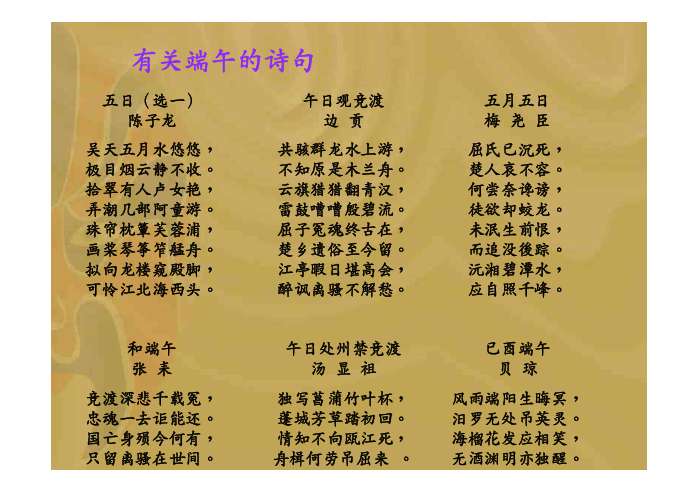 有关端午的诗句
五日（选一）
陈子龙
吴天五月水悠悠，
极目烟云静不收。
拾翠有人卢女艳，
弄潮几部阿童游。
珠帘枕簟芙蓉浦，
画桨琴筝笮艋舟。
拟向龙楼窥殿脚，
可怜江北海西头。
午日观竞渡
边 贡
共骇群龙水上游，
不知原是木兰舟。
云旗猎猎翻青汉，
雷鼓嘈嘈殷碧流。
屈子冤魂终古在，
楚乡遗俗至今留。
江亭暇日堪高会，
醉讽离骚不解愁。
五月五日
梅 尧 臣
屈氏已沉死，
楚人哀不容。
何尝奈谗谤，
徒欲却蛟龙。
未泯生前恨，
而追没後踪。
沅湘碧潭水，
应自照千峰。
和端午
张 耒
竞渡深悲千载冤，
忠魂一去讵能还。
国亡身殒今何有，
只留离骚在世间。
午日处州禁竞渡
汤 显 祖
独写菖蒲竹叶杯，
蓬城芳草踏初回。
情知不向瓯江死，
舟楫何劳吊屈来 。
已酉端午
贝 琼
风雨端阳生晦冥，
汨罗无处吊英灵。
海榴花发应相笑，
无酒渊明亦独醒。